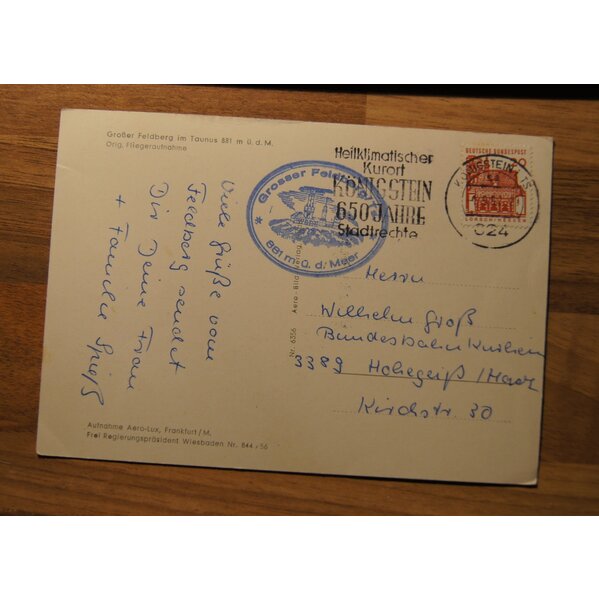 Großer Feldberg im Taunus 881 m ü. d. M.
Orig. Fliegeraufnahme
Viele Grüße vom
Feldberg sendet
Dir Deine Frau
+ Familie Spieß
Aufnahme Aero-Lux, Frankfurt/M.
Frei Regierungspräsident Wiesbaden Nr. 844/56
Grosser Feldberg
881 m ü. d. Meer
Nr. 6256 Aero-Bild-Verlag,
Heilklimatischer
Kurort
KÖNIGSTEIN
650 JAHRE
Stadtrechte
DEUTSCHE BUNDESPOST
20
KÖNIGSTEIN
624
Herrn
Wilhelm Groß
Bundesbahnkurheim
3389 Hohegeiß/Harz
Kirchstr. 30